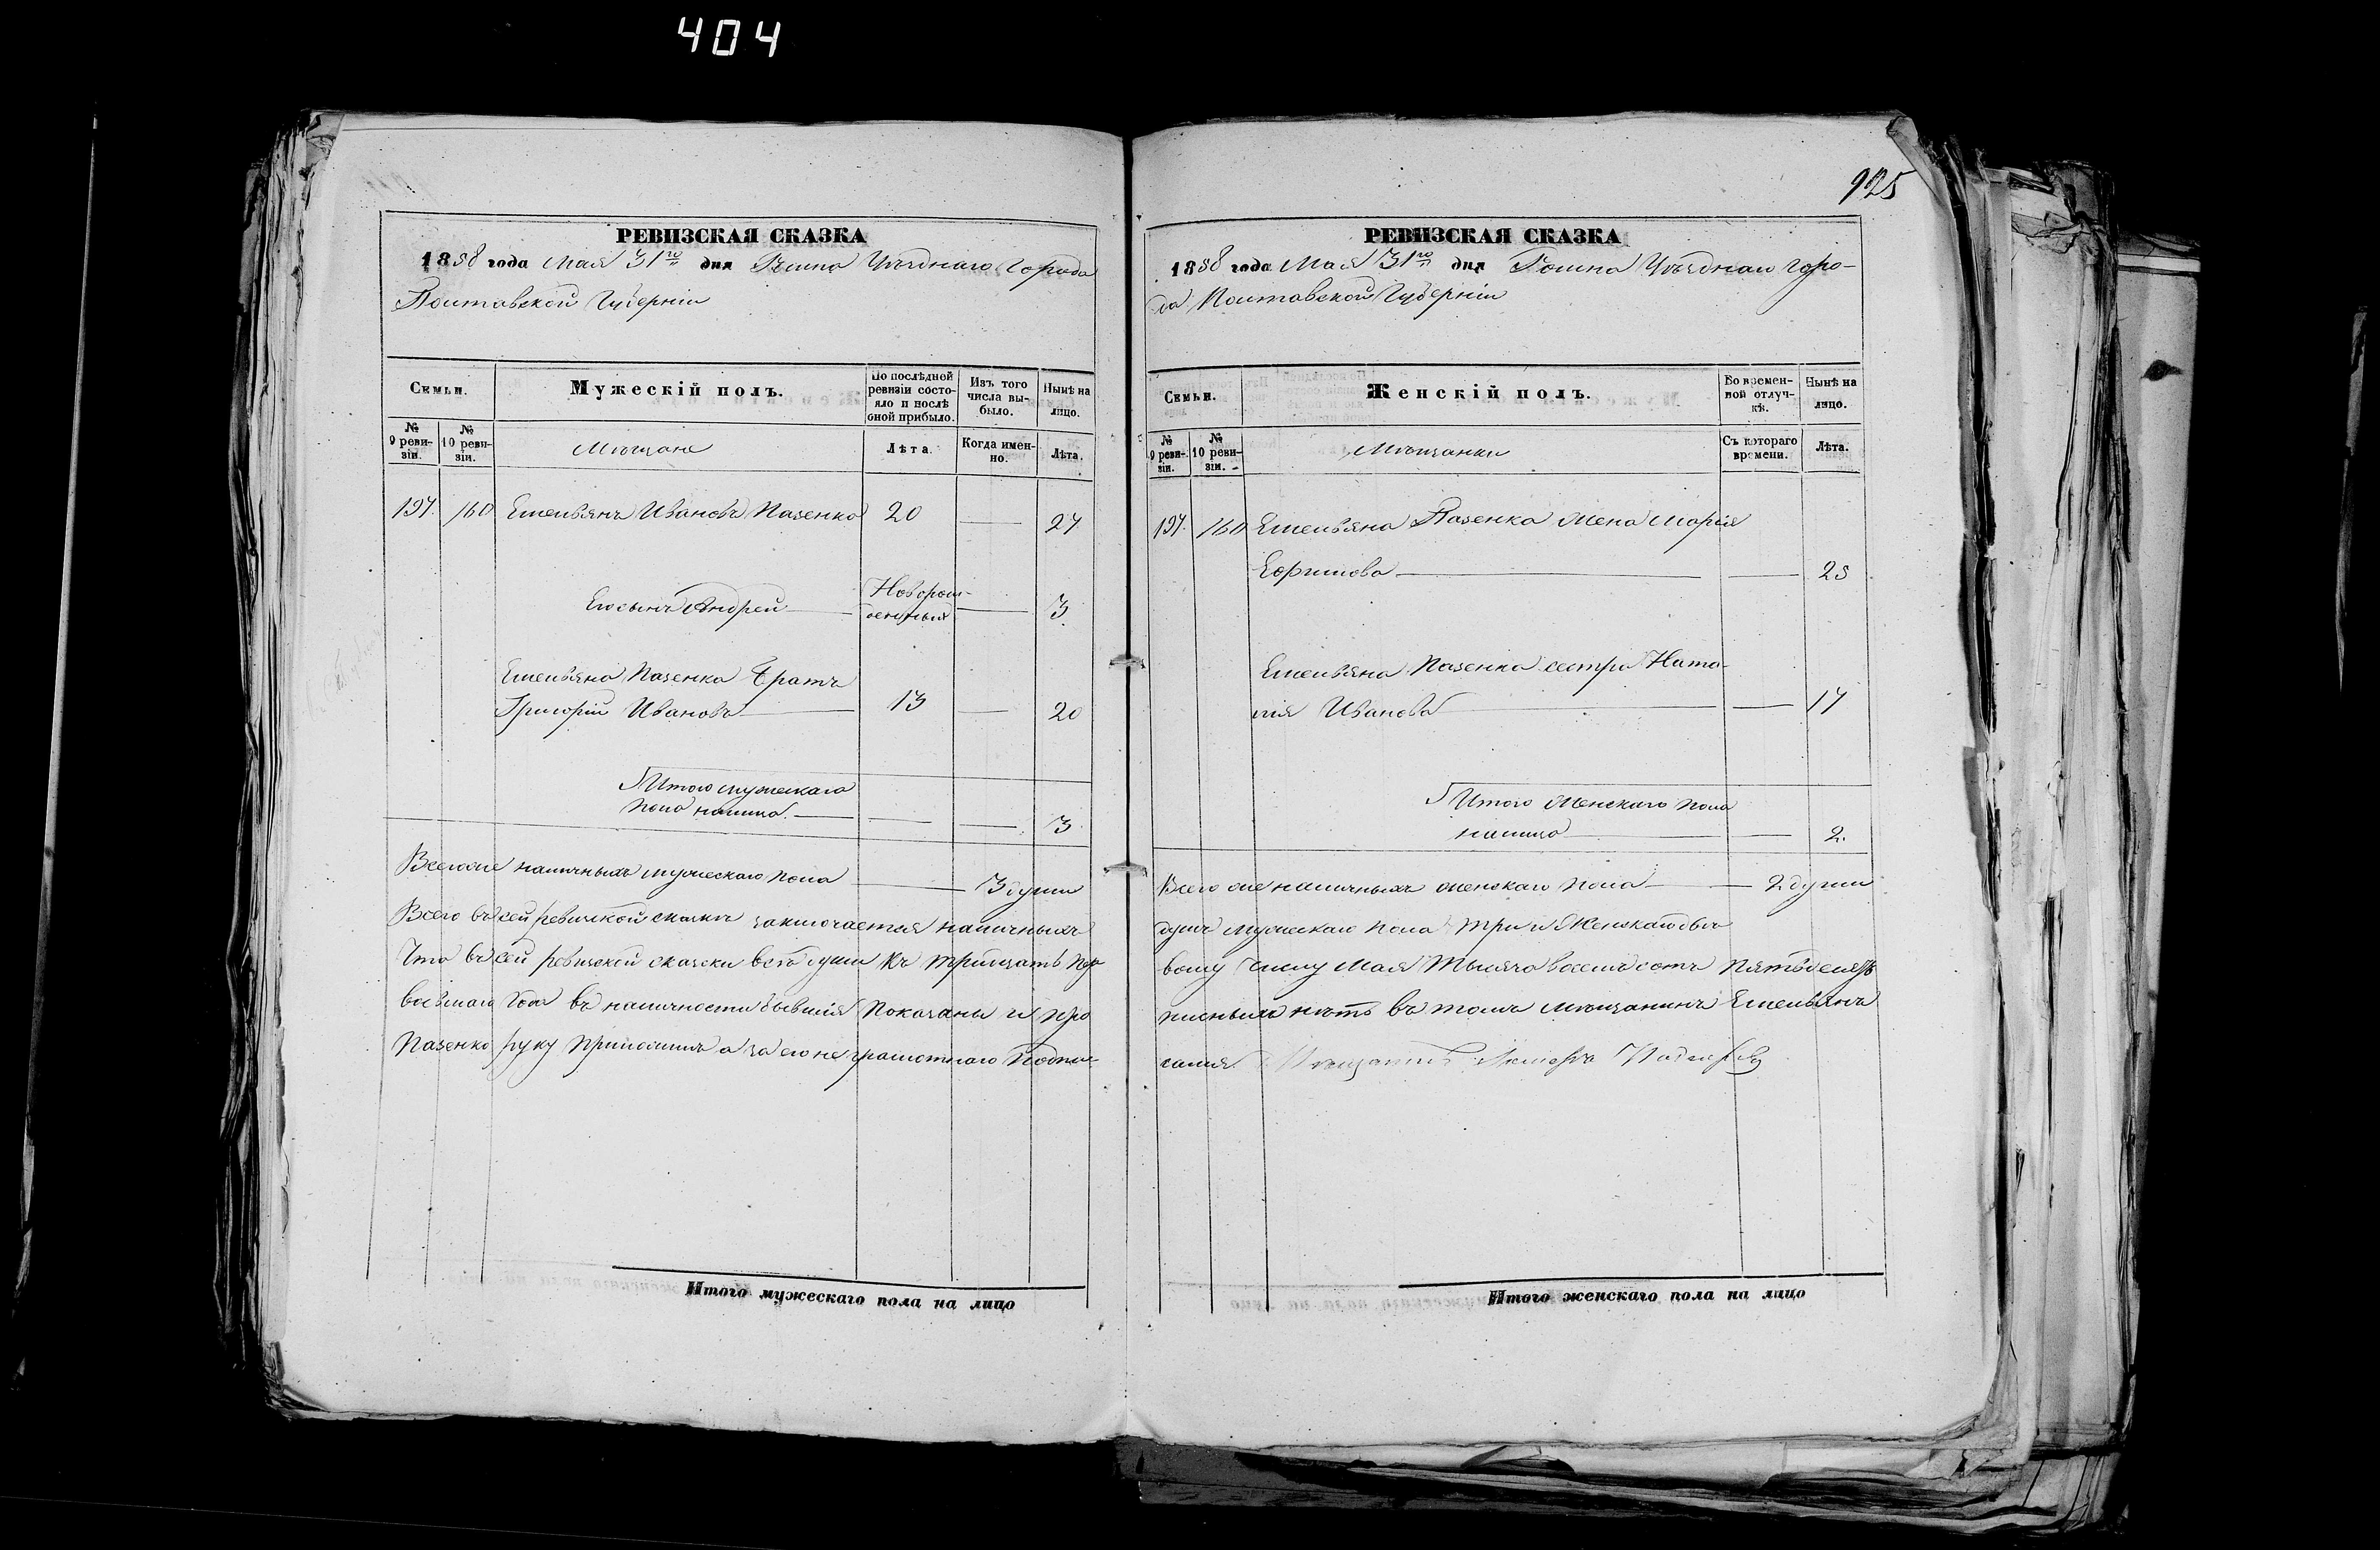 404
925
РЕВИЗСКАЯ СКАЗКА
1858 года Мая 31го дня Ромна Уѣзднаго Города
Полтавской Губерніи
Семьи.
Мужескій полъ.
По послѣдней ревизіи состояло и послѣ оной прибыло.
Изъ того числа выбыло.
Нынѣ на лицо.
№ 9 ревизіи.
№ 10 ревизіи.
Мѣщане
Лѣта.
Когда именно.
Лѣта.
197. 160 Емельянъ Ивановъ Пазенко 20 — 27
Его сынъ Андрей — Новорож-
денный — 3.
Емельяна Пазенка братъ
Григорій Ивановъ — 13 — 20
Итого мужескаго
пола налицо. — — — 3.
Всегоже наличныхъ мужескаго пола — 3 души
Всего въ сей ревизской сказкѣ заключается наличныхъ
Что въ сей ревизской сказки всѣ души къ тритцать пер
восьмаго года въ наличности бывшія показаны и про
Пазенко руку приложилъ а за его неграмотнаго подпи-
Итого мужескаго пола на лицо
РЕВИЗСКАЯ СКАЗКА
1858 года Мая 31го дня Ромна Уѣзднаго Горо-
да Полтавской Губерніи
Семьи.
Женскій полъ.
Во временной отлучкѣ.
Нынѣ на лицо.
№ 9 ревизіи.
№ 10 ревизіи.
Мѣщанки
Съ котораго времени.
Лѣта.
197. 160 Емельяна Пазенка жена Марія
Ефимова — — 25
Емельяна Пазенка сестра Ната-
лія Иванова — — 17
Итого женскаго пола
налицо — — 2.
Всего же наличныхъ женскаго пола — — 2 души
душъ мужескаго пола три и женскаго двѣ
вому числу Мая тысяча восемъ сотъ пятьдесятъ
писныхъ нѣтъ въ томъ мѣщанинъ Емельянъ
сался Мѣщанинъ
Итого женскаго пола на лицо